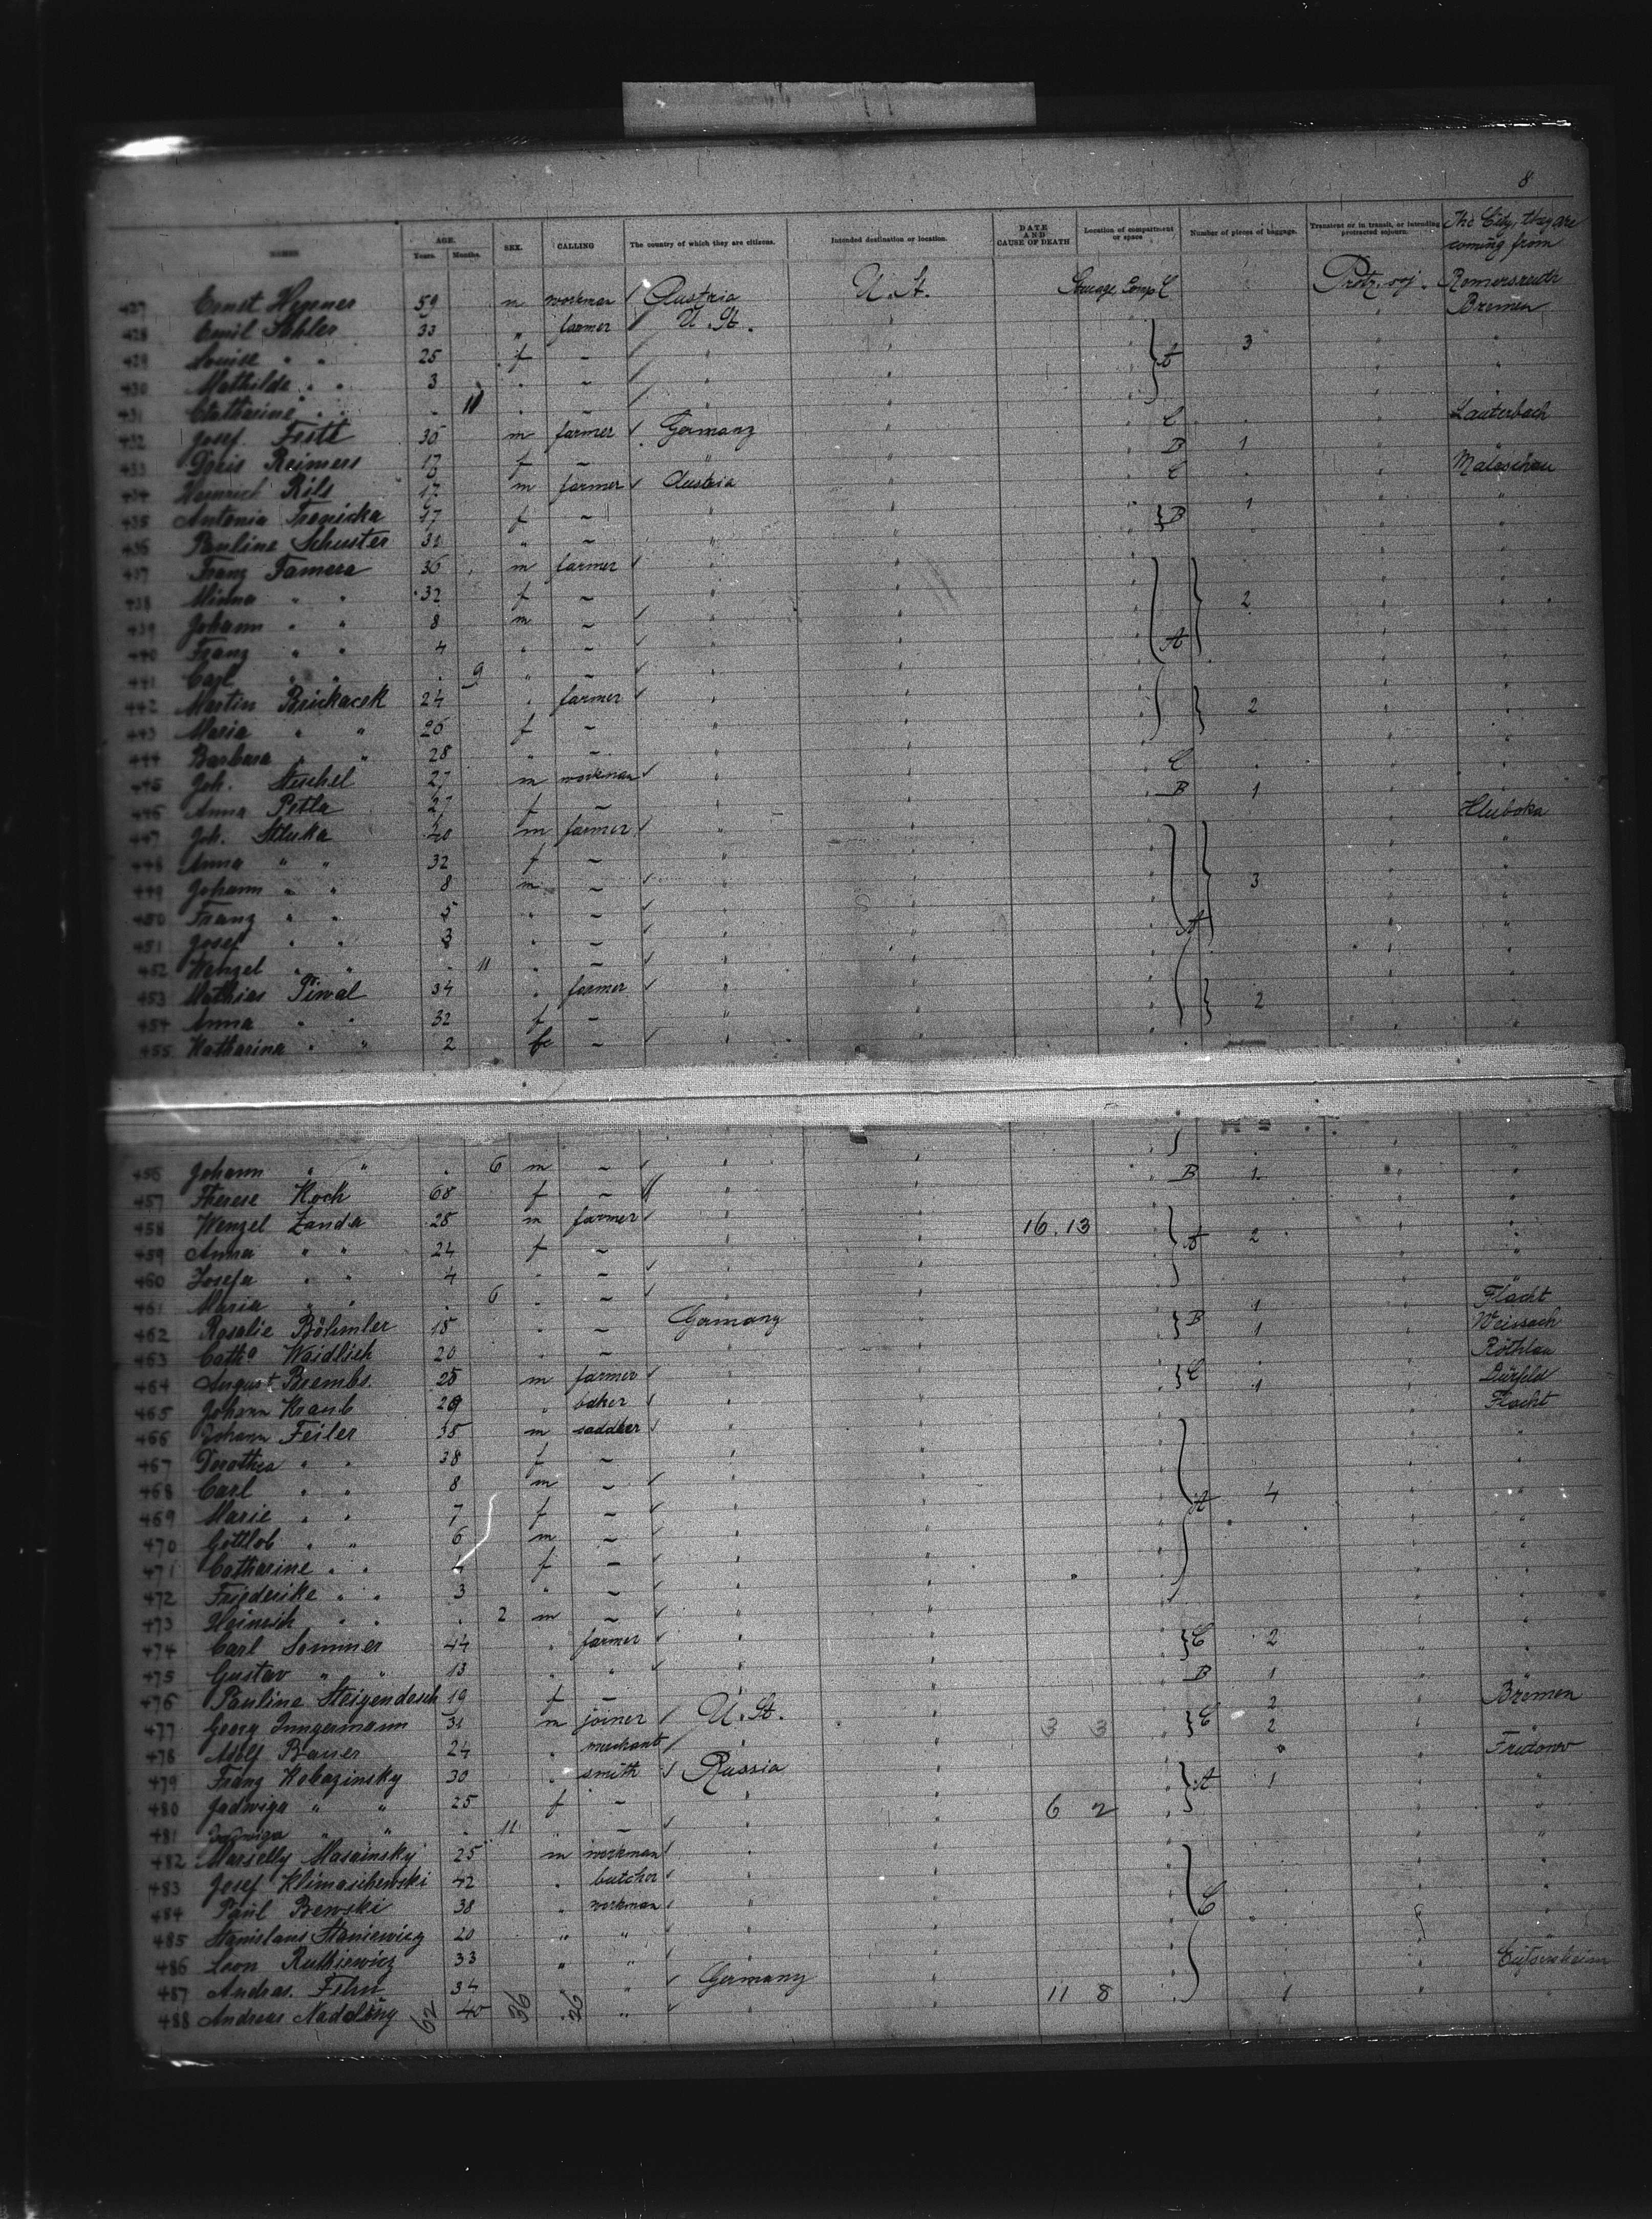 8
NAMES AGE. Years. Months. SEX. CALLING The country of which they are citizens. Intended destination or location. DATE AND CAUSE OF DEATH Location of compartment or space Number of pieces of baggage. Transient or in transit, or intending protracted sojourn. The City they are coming from
427 Ernst 59 m workman Austria U. St. Steerage Comp C Protr. soj. Romersreuth
428 Emil 33 " farmer U. St. " " Bremen
429 Louise " " 25 f – " " A 3 " "
430 Mathilde " " 3 " – " " " "
431 Catharine " " 11 " – " " " "
432 Josef Festl 35 m farmer Germany " C " Lauterbach
433 Doris Reimers 17 f – " " B 1 "
434 Heinrich Rils 17 m farmer Austria " C " Maleschau
435 Antonia 17 f – " " B 1 " "
436 Pauline Schuster 31 " – " " " "
437 Franz Famera 36 m farmer " " " "
438 Minna " " 32 f – " " 2 " "
439 Johann " " 8 m – " " " "
440 Franz " " 4 " – " " A " "
441 Carl " " 9 " – " " " "
442 Martin 24 " farmer " " 2 " "
443 Maria " " 26 f – " " " "
444 Barbara " " 28 " – " " " "
445 Joh. Steschel 27 m workman " " C " "
446 Anna Petla 27 f – " " B 1 " "
447 Joh. Stluka 40 m farmer " " " Hluboka
448 Anna " " 32 f – " " " "
449 Johann " " 8 m – " " 3 " "
450 Franz " " 5 " – " " " "
451 Josef " " 3 " – " " A " "
452 Wenzel " " 11 " – " " " "
453 Mathias 34 " farmer " " 2 " "
454 Anna " " 32 f – " " " "
455 Katharina " " 2 f – " " " "
456 Johann " " 6 m – " " " "
457 Therese Koch 68 f – " " B 1 " "
458 Wenzel Zanda 28 m farmer " " 16.13 " "
459 Anna " " 24 f – " " A 2 " "
460 Josefa " " 4 " – " " " "
461 Maria " " 6 " – " " " "
462 Rosalie Böhmler 18 " – Germany " B 1 " Flacht
463 Catha Waidlich 20 " – " " 1 " Weissach
464 August Brembs. 25 m farmer " " C " Röthlau
465 Johann Kraub 29 " baker " " 1 " Dürfeld
466 Johann Feiler 38 m saddler " " " Flacht
467 Dorothea " " 38 f – " " " "
468 Carl " " 8 m – " " " "
469 Marie " " 7 f – " " A 4 " "
470 Gottlob " " 6 m – " " " "
471 Catharine " " 4 f – " " " "
472 Friederike " " 3 " – " " " "
473 Heinrich " " 2 m – " " " "
474 Carl Sommer 44 " farmer " " C 2 " "
475 Gustav " " 13 " " " " " "
476 Pauline Steigendesch 19 f – " " B 1 " "
477 Georg Jungermann 31 m joiner U. St. " 3 3 C 2 " Bremen
478 Adolf Bauer 24 " merchant " " 2 " "
479 Franz Kobazinsky 30 " smith Russia " A 1 " Fridonov
480 Jadwiga " " 25 f – " " 6 2 " "
481 Jadwiga " " 11 " – " " " "
482 Marselly Masainsky 25 m workman " " " "
483 Josef Klimaschewski 42 " butcher " " " "
484 Paul Bewski 38 " workman " " C " "
485 Stanislaus Staniewicz 20 " " " " " "
486 Leon Ruthiewicz 33 " " " " " "
487 Andreas Fehn 34 " " Germany "
488 Andreas 40 " " " " 11 8 1 "
62 36 26